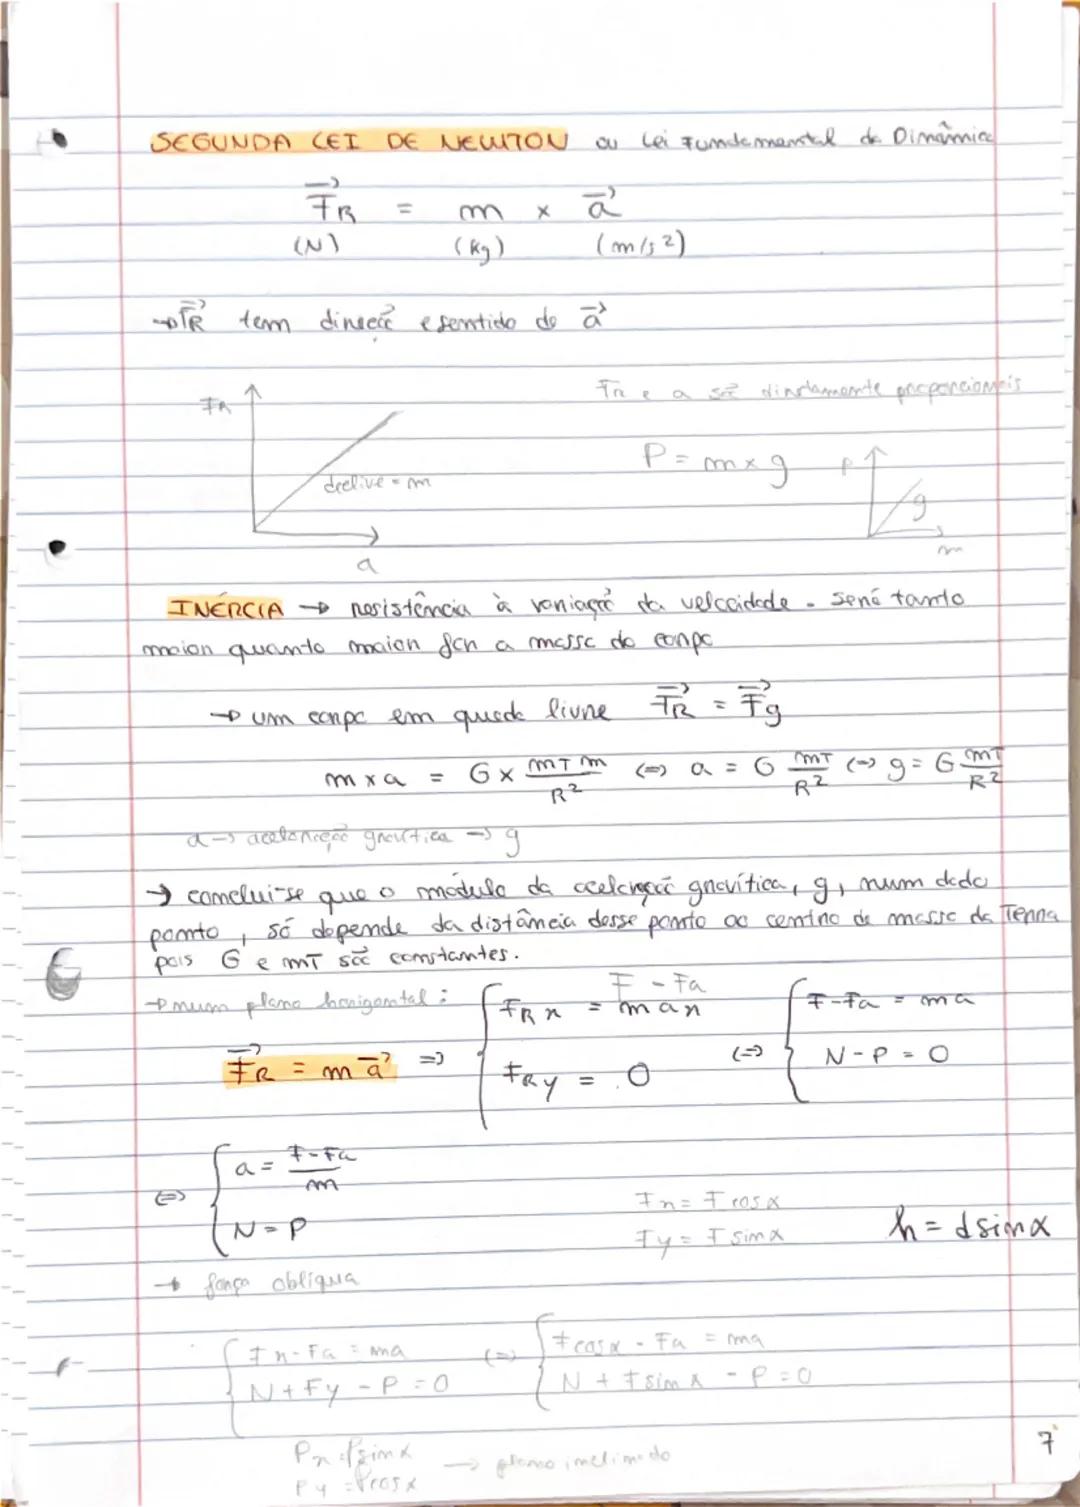 SEGUNDA LEI DE NEWTON ou Lei Fundamental da Dinâmica
F⃗R = m × a⃗
(N) (kg) (m/s²)
→ F⃗R tem direção e sentido de a⃗
FR e a são diretamente proporcionais
FR
declive = m
a
P = m × g
P
g
m
INÉRCIA → resistência à variação da velocidade. Será tanto
maior quanto maior for a massa do corpo
→ um corpo em queda livre F⃗R = F⃗g
m × a = G × mT m / R² (=) a = G mT / R² (=) g = G mT / R²
a → aceleração gravítica → g
→ conclui-se que o módulo da aceleração gravítica, g, num dado
ponto, só depende da distância desse ponto ao centro de massa da Terra
pois G e mT são constantes.
→ num plano horizontal:
F⃗R = m a⃗ =) { FRx = F - Fa max (=) { F - Fa = ma
FRy = 0 N - P = 0
(=) { a = F - Fa / m
N = P
Fx = F cos α
Fy = F sin α
h = d sin α
→ força oblíqua
{ Fx - Fa = ma (=) { F cos α - Fa = ma
N + Fy - P = 0 N + F sin α - P = 0
Px = P sin α
Py = P cos α → plano inclinado
7